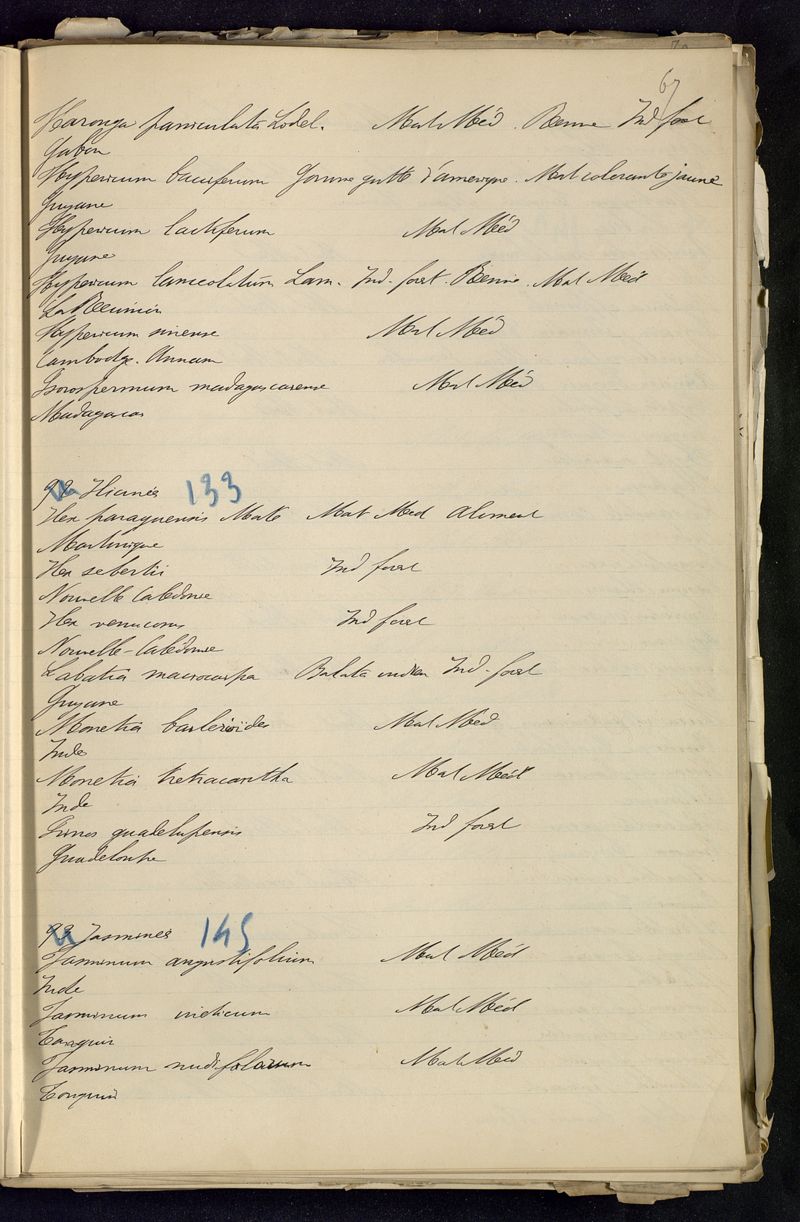 67
Haronga paniculata Lodel. Mat Méd. Resine Ind forest
Gabon
Hypericum bacciferum Gomme gutte d'amerique. Mat colorante jaune
Guyane
Hypericum lactiferum Mat Méd
Guyane
Hypericum lanceolatum Lam. Ind. forest. Resine. Mat Méd
La Réunion
Hypericum sinense Mat Méd
Cambodge. Annam
Psorospermum madagascarense Mat Méd
Madagascar
Ilicinés 133
Ilex paraguensis Mate Mat Med Aliment
Martinique
Ilex sebertii Ind forest
Nouvelle Calédonie
Ilex Ind forest
Nouvelle-Calédonie
Labatia macrocarpa Balata indien Ind. forest
Guyane
Monetia barlerioïdes Mat Méd
Inde
Monetia tetracantha Mat Méd
Inde
Prinos guadelupensis Ind forest
Guadeloupe
Jasminés 145
Jasminum angustifolium Mat Méd
Inde
Jasminum indicum Mat Méd
Tonquin
Jasminum nudiflorum Mat Méd
Tonquin